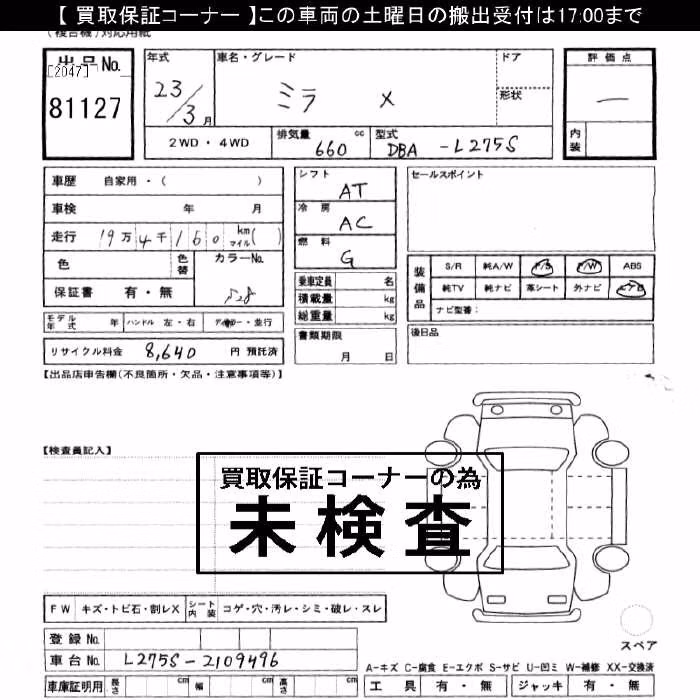 【 買取保証コーナー 】この車両の土曜日の搬出受付は17:00まで
(複合機)対応用紙
出品No.
[2047]
81127
年式
23/3月
車名・グレード
ミラ X
ドア
形状
2WD・4WD
排気量 660 cc
型式 DBA-L275S
評価点
—
内装
車歴 自家用・( )
車検 年 月
走行 19万4千160 km マイル( )
色
色替
カラーNo.
保証書 有・無
シフト AT
冷房 AC
燃料 G
乗車定員 名
積載量 kg
総重量 kg
書類期限
月 日
セールスポイント
装備品
S/R 純A/W P/S P/W ABS
純TV 純ナビ 革シート 外ナビ
ナビ型番:
後日品
モデル年式 年 ハンドル 左・右 ディーラー・並行
リサイクル料金 8,640 円 預託済
【出品店申告欄(不良箇所・欠品・注意事項等)】
【検査員記入】
買取保証コーナーの為
未検査
FW キズ・トビ石・割レX シート内装 コゲ・穴・汚レ・シミ・破レ・スレ
登録No.
車台No. L275S-2109496
車庫証明用 長さ cm 幅 cm 高さ cm
スペア
A-キズ C-腐食 E-エクボ S-サビ U-凹ミ W-補修 XX-交換済
工具 有・無 ジャッキ 有・無